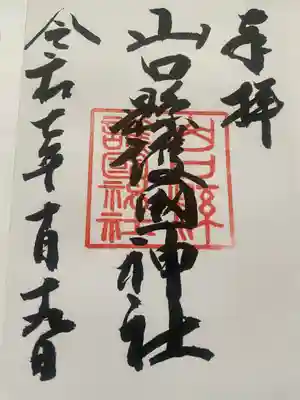 奉拝
山口縣護國神社
令和七年十月十九日
山口縣
護國神社